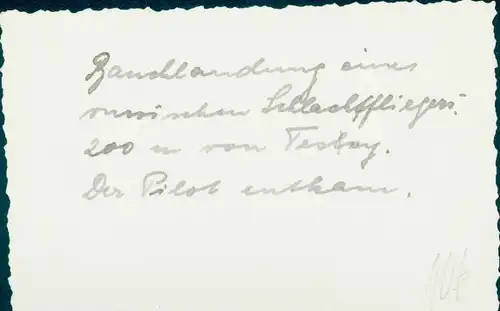 Bauchlandung eines
russischen Schlachtfliegers.
200 m von
Der Pilot entkam.